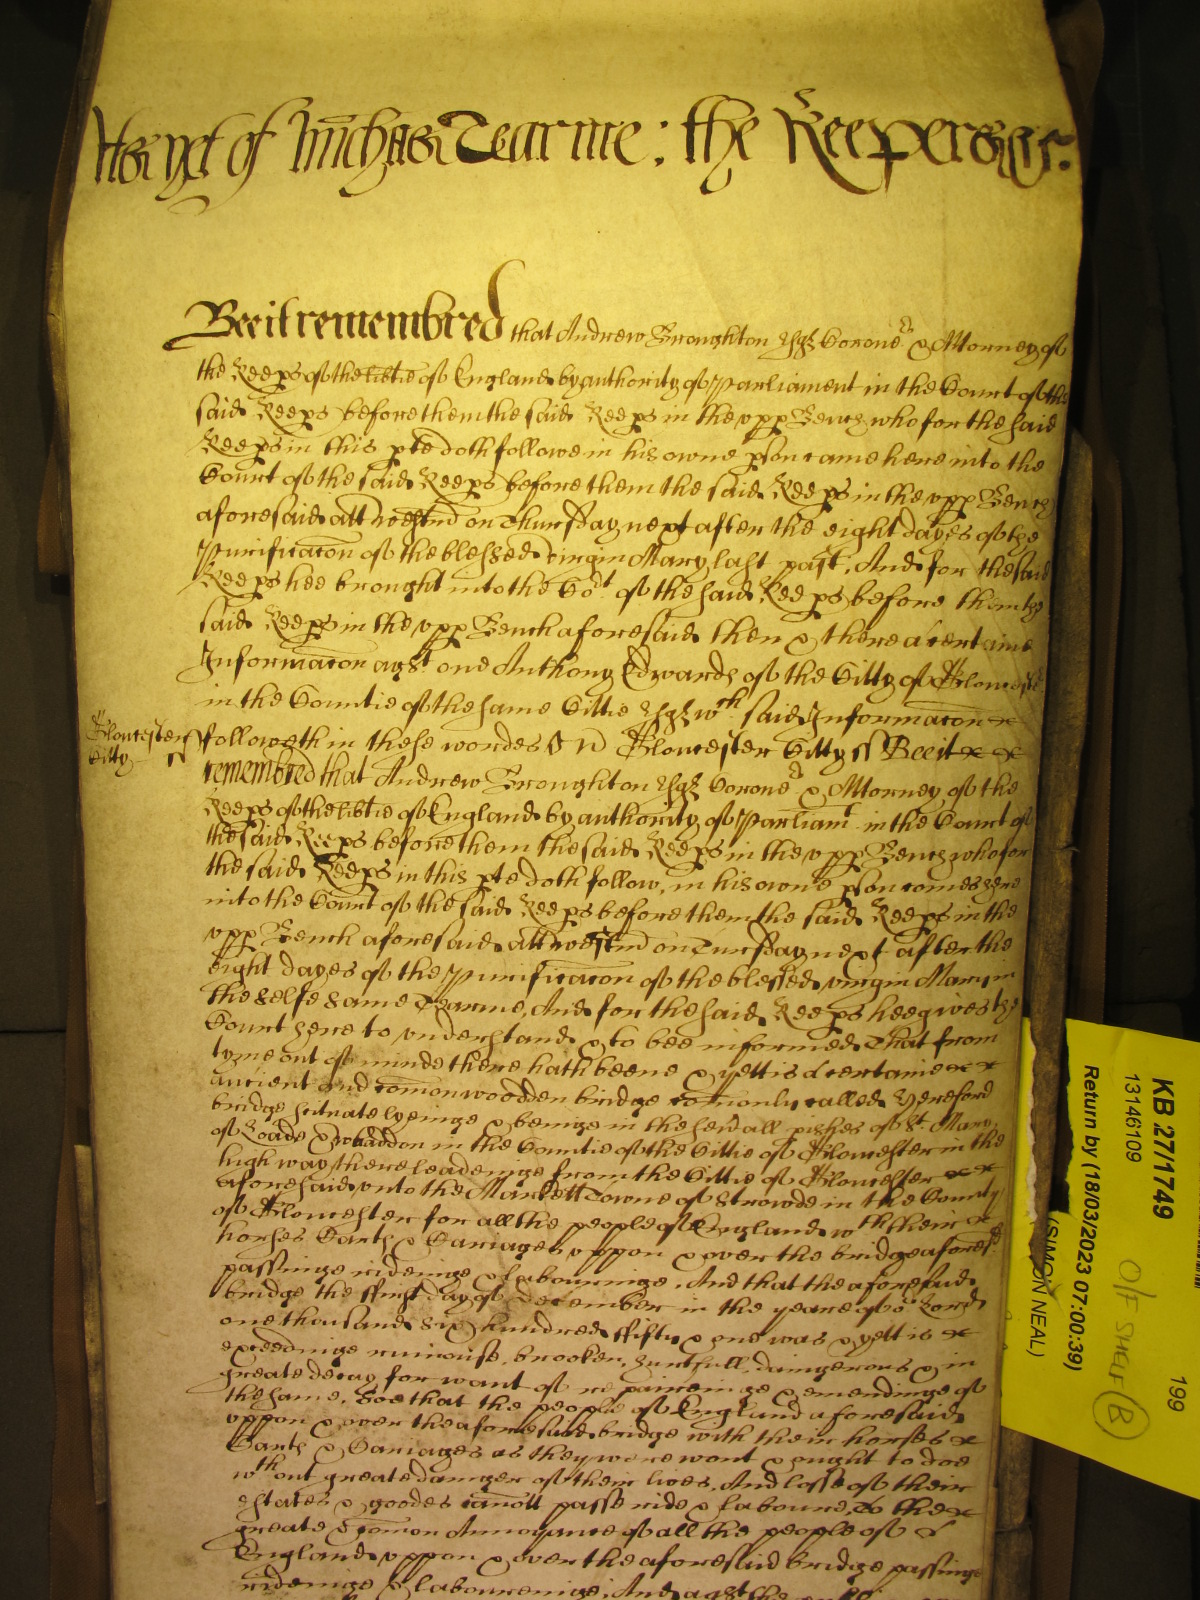 As yet of Michas Tearme : the Keepers &c.
Bee it remembred that Andrew Broughton Esqr Corone & Attorney of
the Keeps of the libtie of England by authority of Parliament in the Court of the
said Keeps before them the said Keeps in the upp Bench who for the said
Keeps in this pte doth followe in his owne pson came here into the
Court of the said Keeps before them the said Keeps in the upp Bench
aforesaid att Westmd on Thursday next after the eight dayes of the
Purificacon of the blessed virgin Mary last past, And for the said
Keeps hee brought into the Cort of the said Keeps before them the
said Keeps in the upp Bench aforesaid then & there a certaine
Informacon agst one Anthony Edwards of the Citty of Gloucester
in the Countie of the same Cittie Esqr wch said Informacon
Gloucester
Citty
followeth in these wordes Gloucester Citty ss Bee it
remembred that Andrew Broughton Esqr Corone & Attorney of the
Keeps of the libtie of England by authority of Parliamt in the Court of
the said Keeps before them the said Keeps in the upp Bench who for
the said Keeps in this pte doth follow, in his owne pson comes here
into the Court of the said Keeps before them the said Keeps in the
upp Bench aforesaid att Westmd on Tuesday next after the
eight dayes of the Purificacon of the blessed virgin Mary in
the selfe same Tearme, And for the said Keeps hee gives the
Court here to understand & to bee informed That from
tyme out of minde there hath beene & yett is a certaine
ancient and comon wooden bridge comonly called Hereford
bridge scituate lyeinge & beinge in the severall pishes of St. Mary
of Loade & Whaddon in the Countie of the Cittie of Gloucester in the
high way there leadeinge from the Cittie of Gloucester
aforesaid unto the Markett Towne of Strowde in the County
of Gloucester for all the people of England wth their
horses Carts & Cariages uppon & over the bridge aforesd
passinge rideinge & labouringe, And that the aforesaid
bridge the first day of December in the yeare of or Lord
one thousand six hundred fifty & one was & yett is
exceedinge ruinouse, brooken, hurtfull, daungerous & in
greate decay for want of repaireinge & emendinge of
the same, Soe that the people of England aforesaid
uppon & over the aforesaid bridge with their horses
Carts & Cariages as they were wont & ought to doe
wthout greate daunger of their lives, And losse of their
estates & goodes cannott passe ride & laboure, To the
greate & comon Annoyance of all the people of
England uppon & over the aforesaid bridge passinge
rideinge & laboureinge, And agst the
KB 27/1749
13146109
199
Return by (18/03/2023 07:00:39)
(SIMON NEAL)
O/F SHELF B